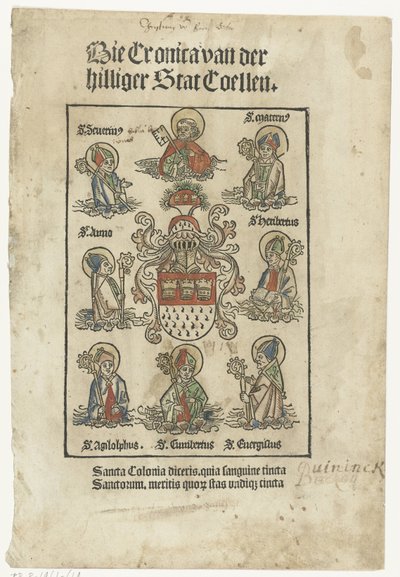 Die Cronica van der
hilliger Stat Coellen.
S. Seuerin⁹
S. matern⁹
S. Anno
S. Heribertus
S. Agilolphus.
S. Cunibertus
S. Euergislus
Sancta Colonia diceris, quia sanguine tincta
Sanctorum, meritis quorꝝ stas vndiqꝫ cincta
Quininck